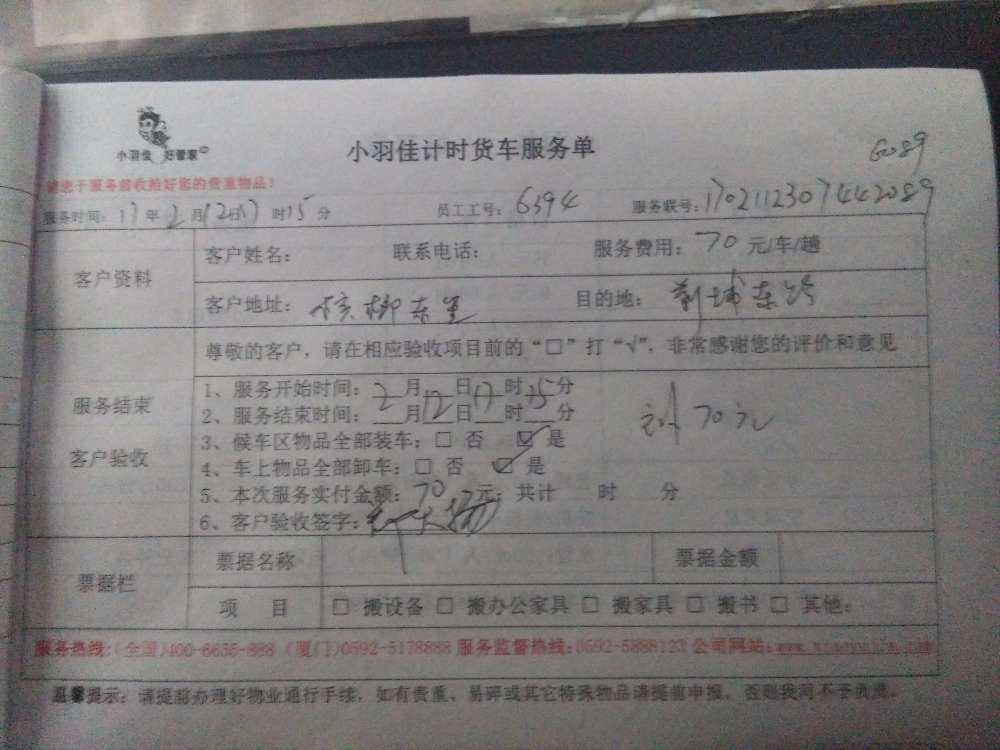 小羽佳 好管家
小羽佳计时货车服务单
6089
请您于服务前收拾好您的贵重物品！
服务时间：17年2月12日17时15分 员工工号：6394 服务联号：1702112307442089
客户资料
客户姓名： 联系电话： 服务费用：70元/车/趟
客户地址：槟榔东里 目的地：莆埔东路
尊敬的客户，请在相应验收项目前的“□”打“√”，非常感谢您的评价和意见
服务结束
客户验收
1、服务开始时间：2月12日17时35分
2、服务结束时间：月 日 时 分
70元
3、候车区物品全部装车：□ 否 ☑ 是
4、车上物品全部卸车：□ 否 ☑ 是
5、本次服务实付金额：70元；共计 时 分
6、客户验收签字：
票据栏
票据名称 票据金额
项 目 □ 搬设备 □ 搬办公家具 □ 搬家具 □ 搬书 □ 其他：
服务热线：（全国）400-6655-888 （厦门）0592-5178888 服务监督热线：0592-5888123 公司网站：
温馨提示：请提前办理好物业通行手续，如有贵重、易碎或其它特殊物品请提前申报，否则我司不予负责。